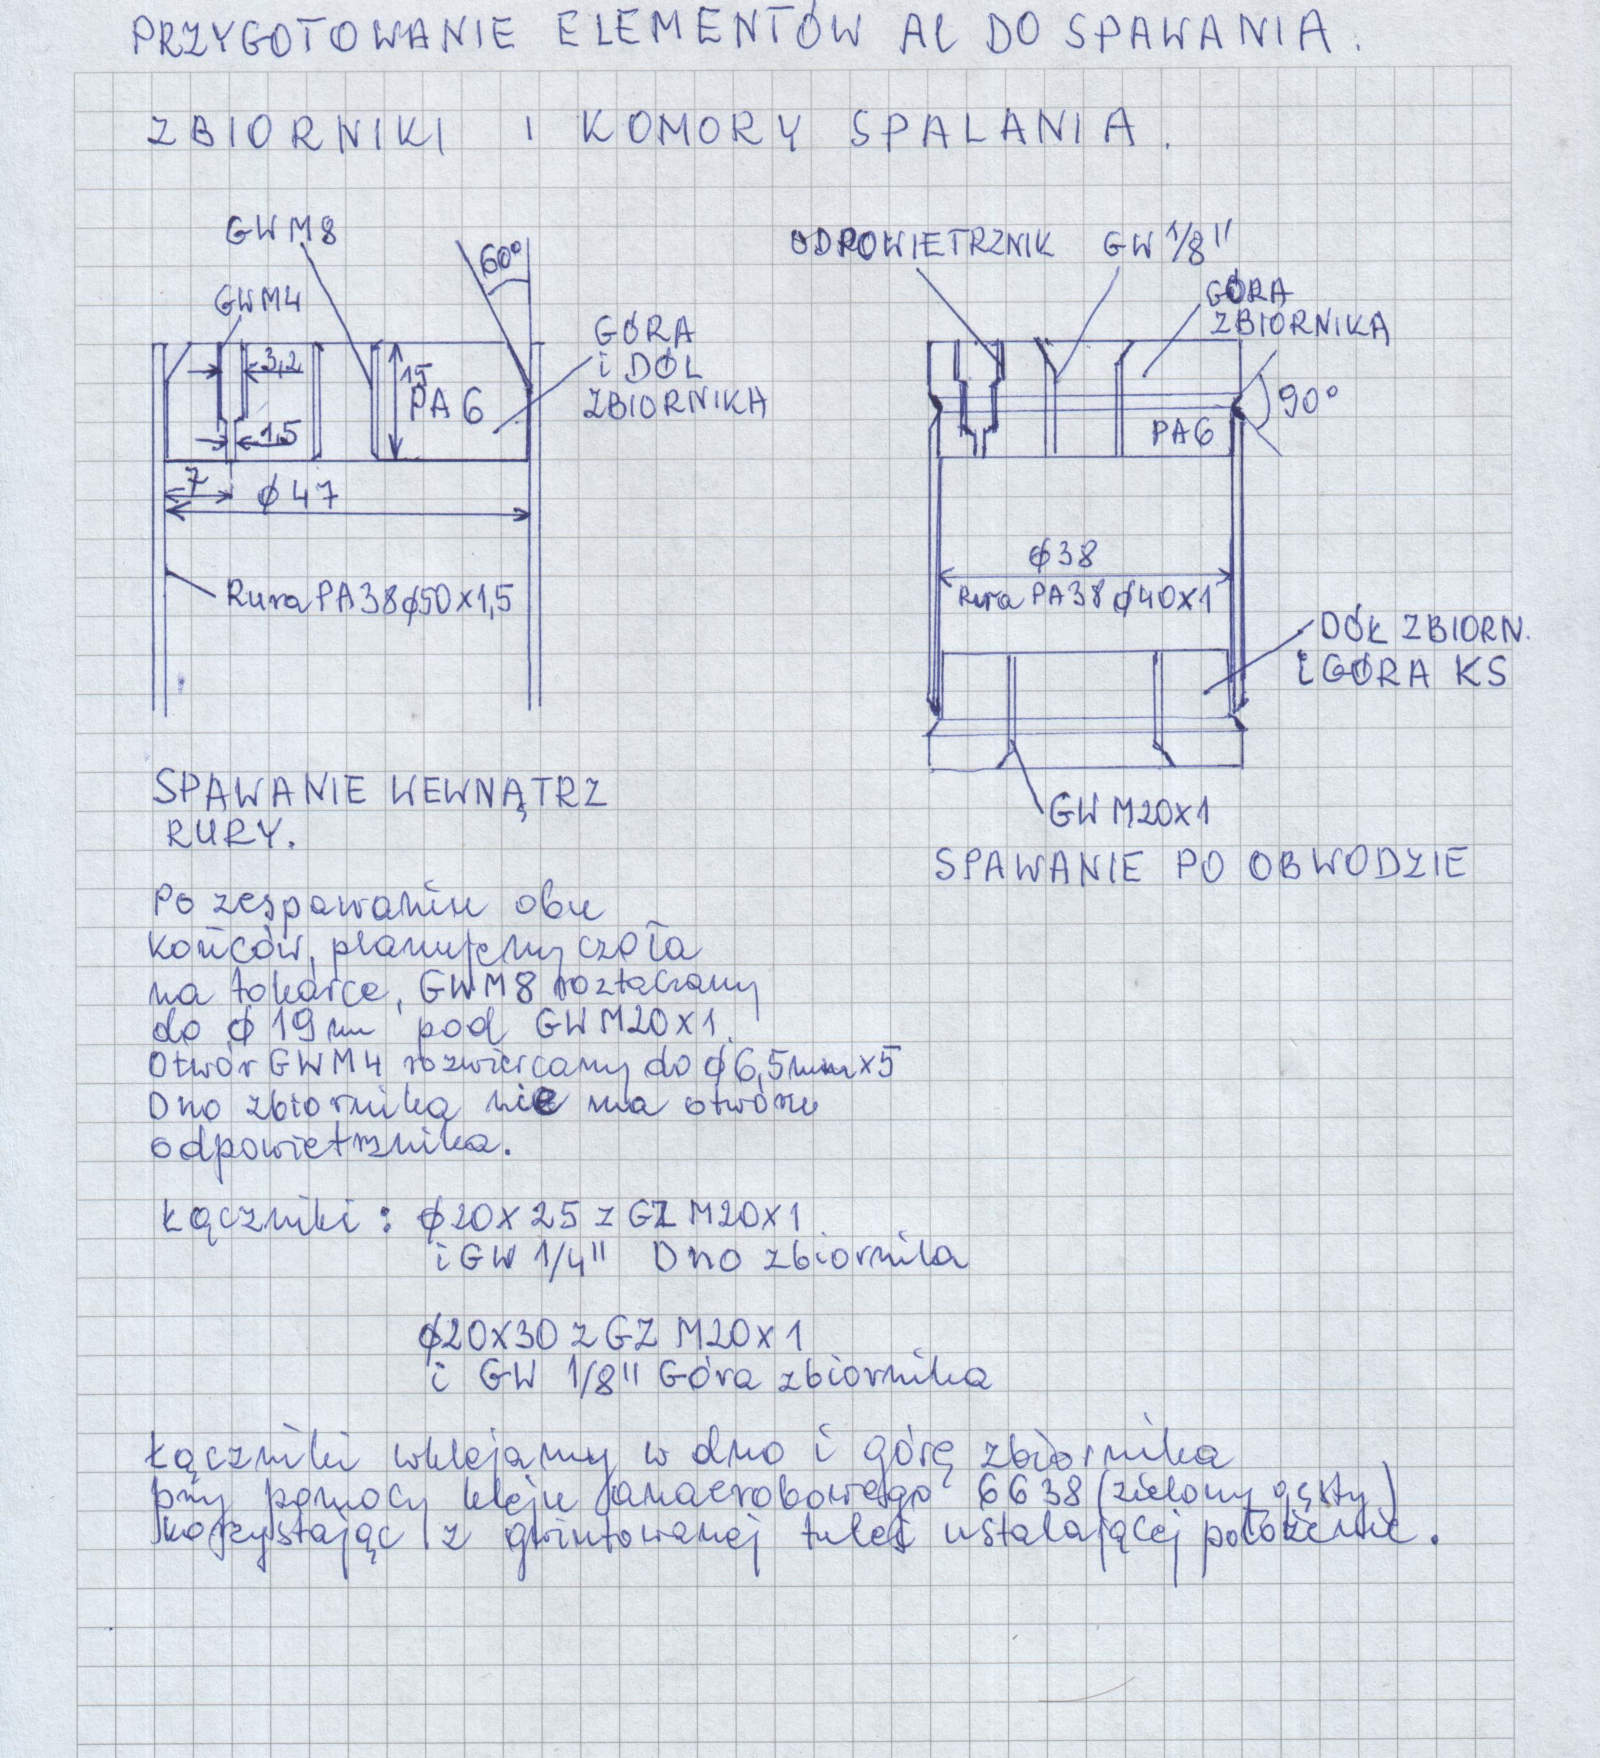 PRZYGOTOWANIE ELEMENTÓW AL DO SPAWANIA.
ZBIORNIKI I KOMORY SPALANIA.
GWM8
60°
GWM4
3,2
15
PA6
1,5
7
ø47
GÓRA
i DÓŁ
ZBIORNIKA
Rura PA38 ø50x1,5
SPAWANIE WEWNĄTRZ
RURY.
ODPOWIETRZNIK
GW 1/8"
GÓRA
ZBIORNIKA
90°
PA6
ø38
Rura PA38 ø40x1
DÓŁ ZBIORN.
i GÓRA KS
GW M20x1
SPAWANIE PO OBWODZIE
Po zespawaniu obu
końców, planujemy czoła
na tokarce, GWM8 roztaczamy
do ø19mm pod GWM20x1.
Otwór GWM4 rozwiercamy do ø6,5mmx5
Dno zbiornika nie ma otworu
odpowietrznika.
Łączniki: ø20x25 z GZ M20x1
i GW 1/4" Dno zbiornika
ø20x30 z GZ M20x1
i GW 1/8" Góra zbiornika
Łączniki wklejamy w dno i górę zbiornika
przy pomocy kleju anaerobowego 6638 (zielony gęsty)
korzystając z gwintowanej tulei ustalającej położenie.